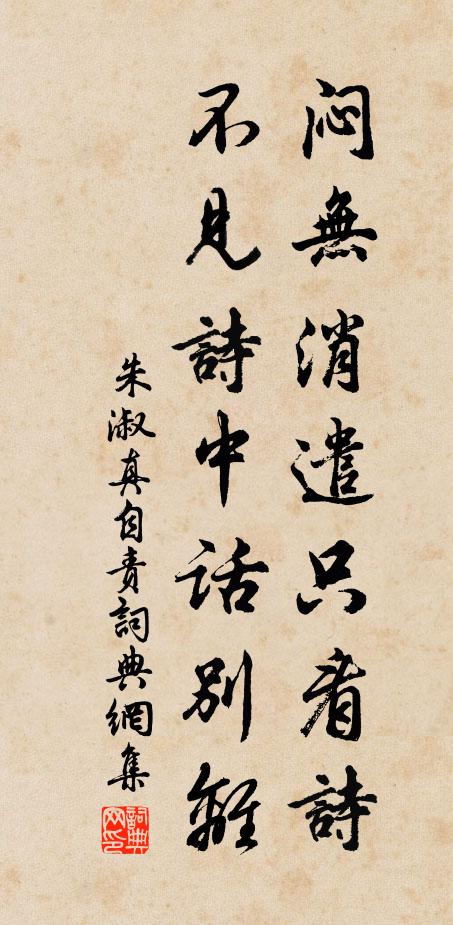 悶無消遣只看詩
不見詩中話別離
朱淑真自責詞典網集
詞典网印